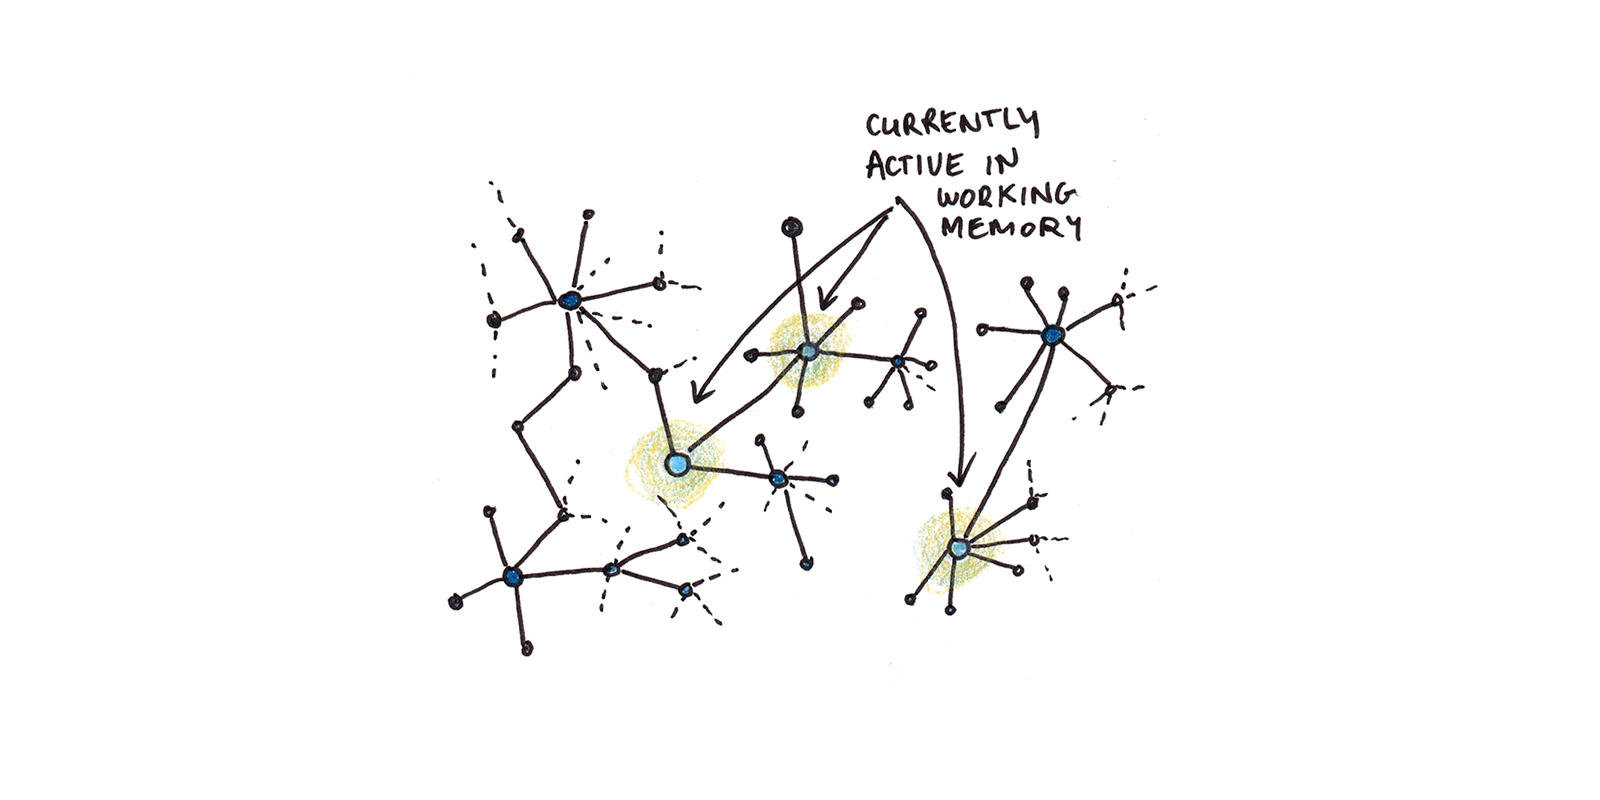 CURRENTLY
ACTIVE IN
WORKING
MEMORY